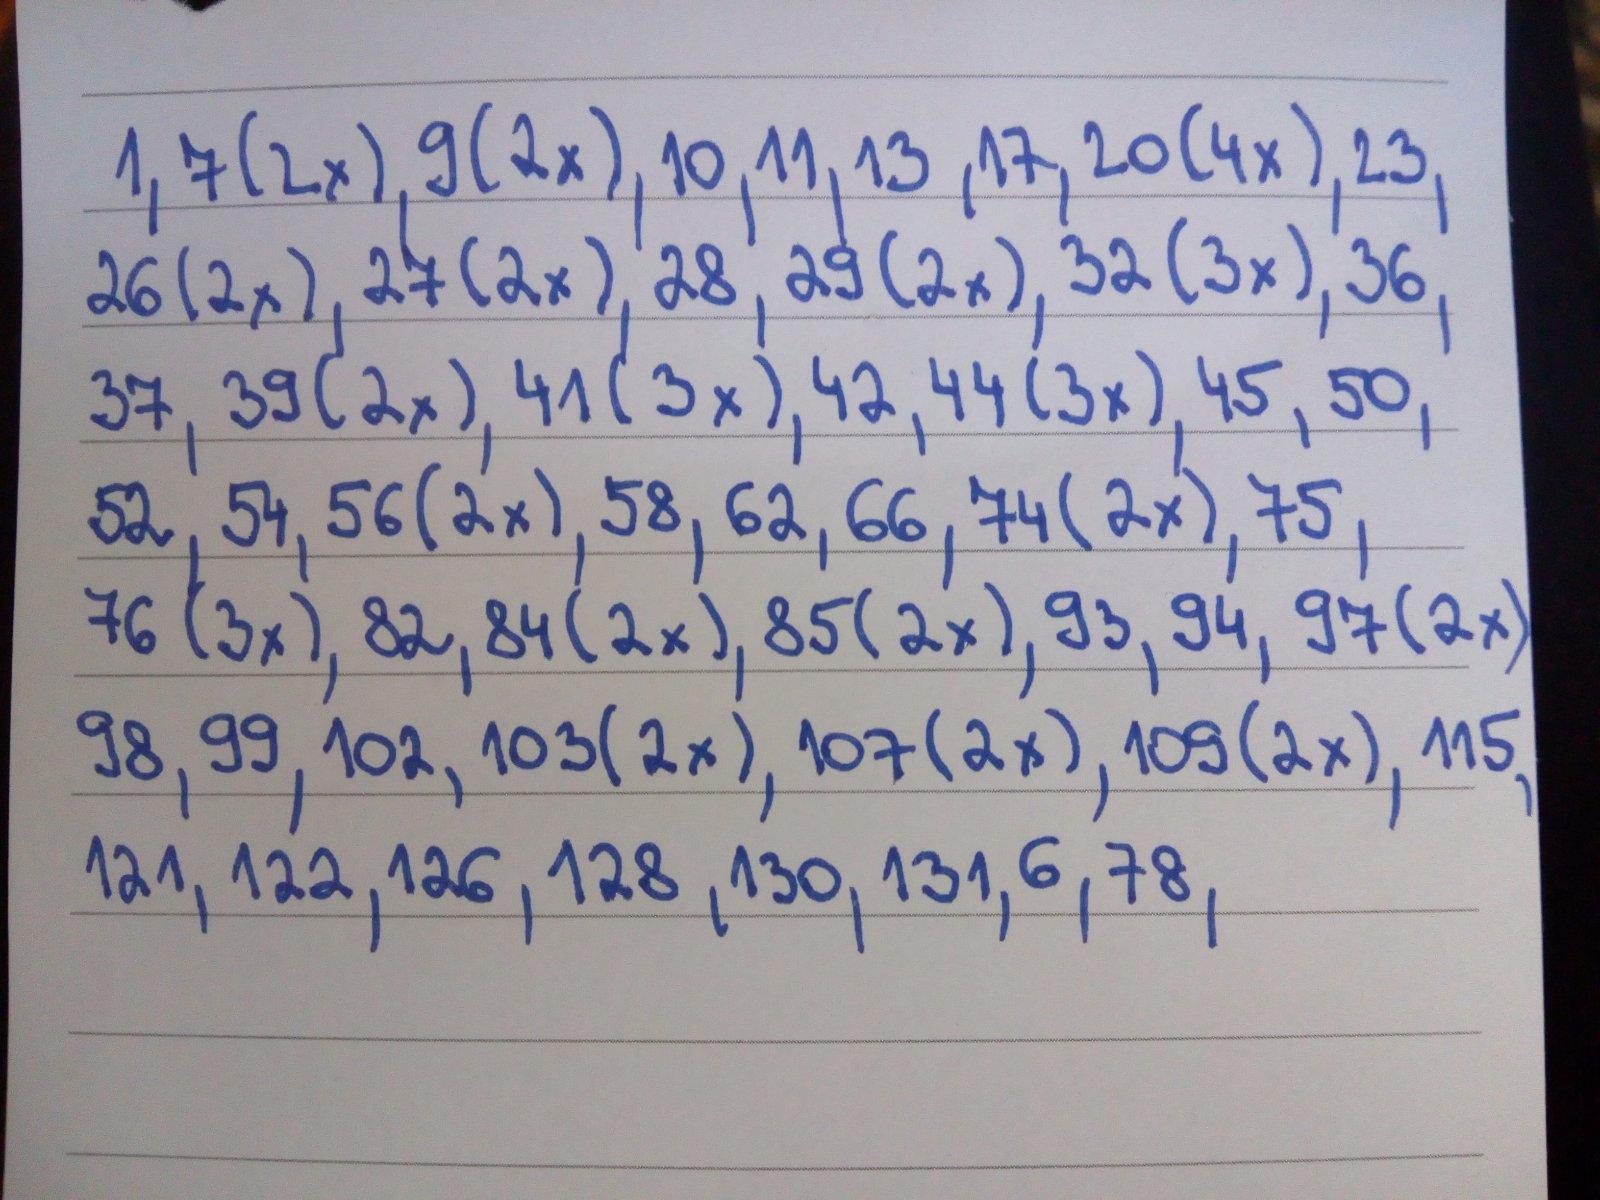 1, 7(2x), 9(2x), 10, 11, 13, 17, 20(4x), 23,
26(2x), 27(2x), 28, 29(2x), 32(3x), 36,
37, 39(2x), 41(3x), 42, 44(3x), 45, 50,
52, 54, 56(2x), 58, 62, 66, 74(2x), 75,
76(3x), 82, 84(2x), 85(2x), 93, 94, 97(2x)
98, 99, 102, 103(2x), 107(2x), 109(2x), 115,
121, 122, 126, 128, 130, 131, 6, 78,